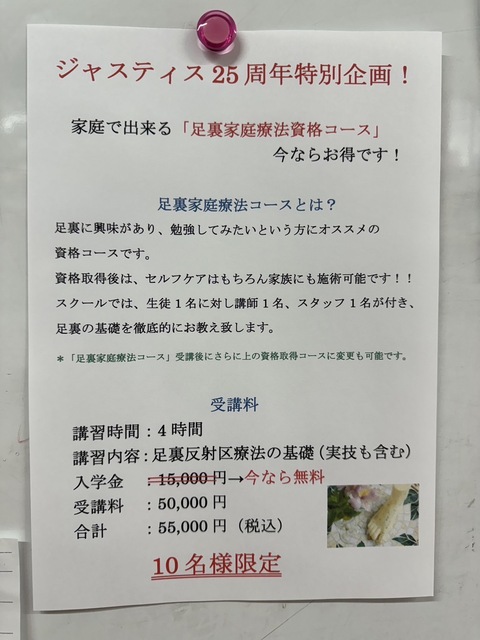 ジャスティス25周年特別企画！
家庭で出来る「足裏家庭療法資格コース」
今ならお得です！
足裏家庭療法コースとは？
足裏に興味があり、勉強してみたいという方にオススメの
資格コースです。
資格取得後は、セルフケアはもちろん家族にも施術可能です！！
スクールでは、生徒1名に対し講師1名、スタッフ1名が付き、
足裏の基礎を徹底的にお教え致します。
＊「足裏家庭療法コース」受講後にさらに上の資格取得コースに変更も可能です。
受講料
講習時間：4時間
講習内容：足裏反射区療法の基礎（実技も含む）
入学金　：15,000円→今なら無料
受講料　：50,000円
合計　　：55,000円（税込）
10名様限定